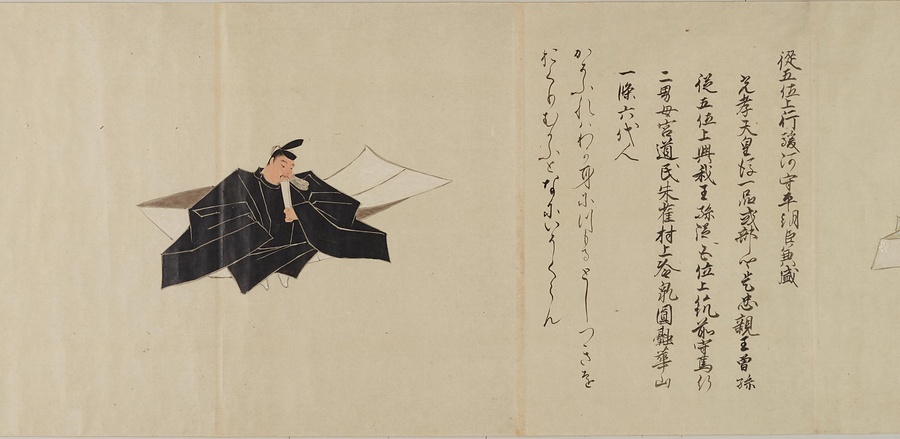 從五位上行駿河守平朝臣兼盛
光孝天皇後一品式部卿是忠親王曾孫
從五位上興我王孫從五位上筑前守篤行
二男母宮道氏朱雀村上冷泉圓融華山
一條六代人
かそふれはわか身につもるとし つきを
おくりむかふとなにいそくらん